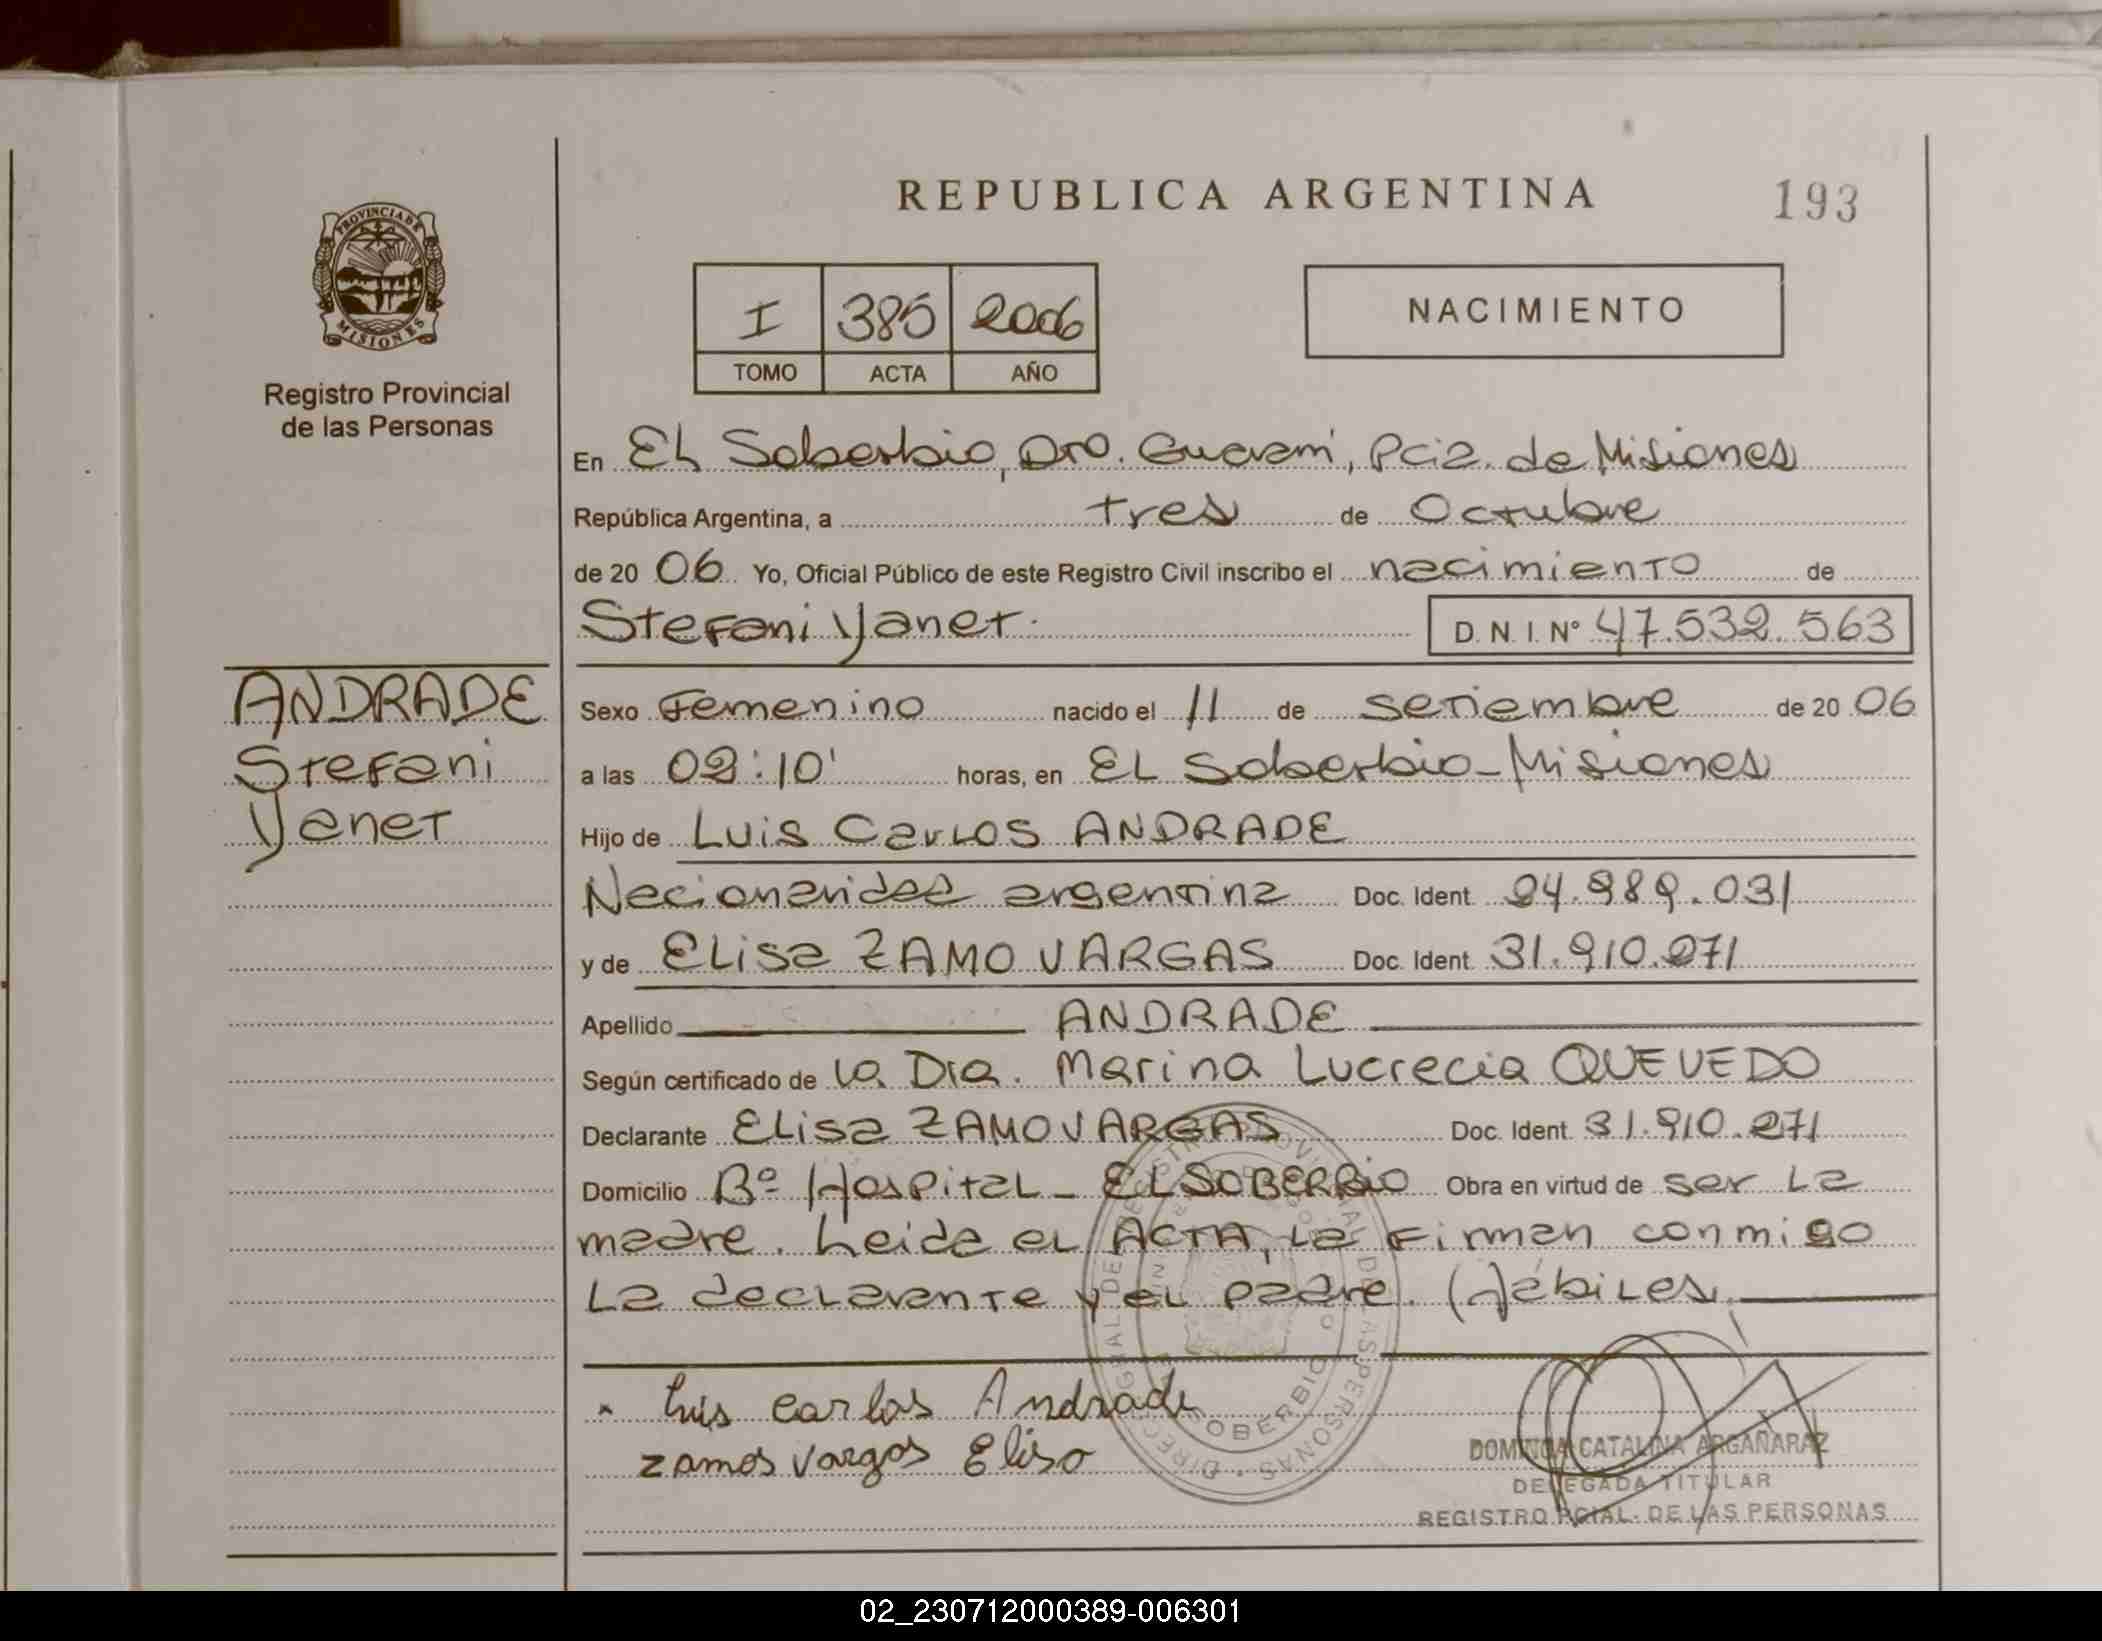 REPUBLICA ARGENTINA
193
PROVINCIA DE
MISIONES
Registro Provincial
de las Personas
I 385 2006
TOMO ACTA AÑO
NACIMIENTO
En EL Soberbio, Dto. Guaraní, Pcia. de Misiones
República Argentina, a tres de Octubre
de 20 06 Yo, Oficial Público de este Registro Civil inscribo el nacimiento de
Stefani Yanet. D. N. I. Nº 47.532.563
ANDRADE
Stefani
Yanet
Sexo Femenino nacido el 11 de setiembre de 20 06
a las 02:10' horas, en EL Soberbio-Misiones
Hijo de Luis Carlos ANDRADE
Nacionalidad argentina Doc. Ident. 24.989.031
y de Elisa ZAMO VARGAS Doc. Ident. 31.910.271
Apellido ANDRADE
Según certificado de la Dra. Marina Lucrecia QUEVEDO
Declarante Elisa ZAMO VARGAS Doc. Ident. 31.910.271
Domicilio Bº Hospital - EL SOBERBIO Obra en virtud de ser la
madre. Leida el ACTA, la firman conmigo
La declarante y el padre. Hábiles.
Luis Carlos Andrade
zamos vargas Elisa
SOBERBIO
DOMINGA CATALINA ARGAÑARAZ
DELEGADA TITULAR
REGISTRO PCIAL. DE LAS PERSONAS
02_230712000389-006301